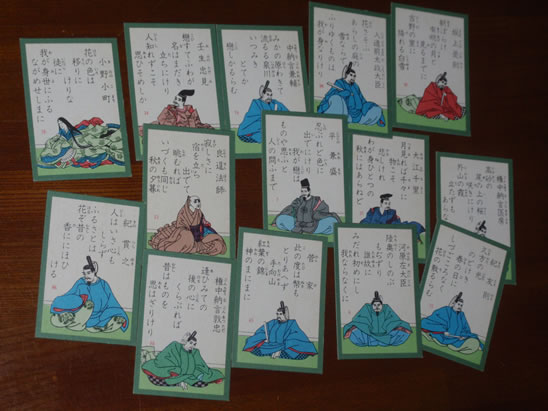 小野小町
花の色は
移りにけりな
徒に
我が身世にふる
ながめせしまに
壬生忠見
戀すてふわが
名はまだき
立ちにけり
人知れずこそ
思ひそめしか
中納言兼輔
みかの原わきて
流るる泉川
いつみき
とてか
戀しかるらむ
入道前太政大臣
花さそふ
あらしの庭の
雪ならで
ふりゆくものは
我が身なりけり
坂上是則
朝ぼらけ
有明の月と
見るまでに
吉野の里に
降れる白雪
良暹法師
寂しさに
宿を立ち
出でて
眺むれば
いづくも同じ
秋の夕暮
平兼盛
忍ぶれど色に
出でにけり
我が戀は
ものや思ふと
人の問ふまで
大江千里
月見れば千々に
物こそ
悲しけれ
わが身ひとつの
秋にはあらねど
権中納言匡房
高砂の
尾上の桜
咲きにけり
外山の霞
立たずもあら
紀貫之
人はいさ心も
しらず
ふるさとは
花ぞ昔の
香ににほひ
ける
権中納言敦忠
逢ひみての
後の心に
くらぶれば
昔はものを
思はざりけり
菅家
此の度は幣も
とりあへず
手向山
紅葉の錦
神のまにまに
河原左大臣
陸奥のしのぶ
もぢずり
誰故に
みだれ初めにし
我ならなくに
紀友則
久方の光
のどけき
春の日に
しづ心なく
花の散るらむ